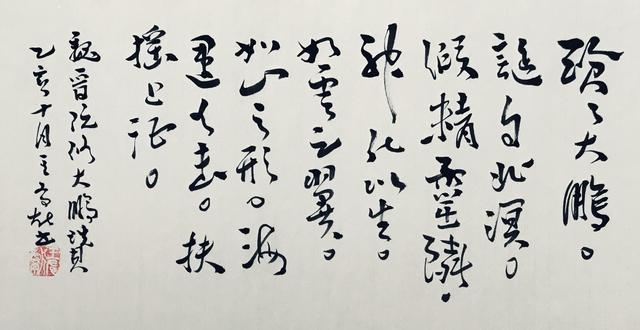 蒼々大鵬。
誕自北溟。
假精靈鱗。
神化以生。
如雲之翼。
如山之形。海
運水擊。扶
搖上征。
魏晉阮修大鵬贊
乙亥十月